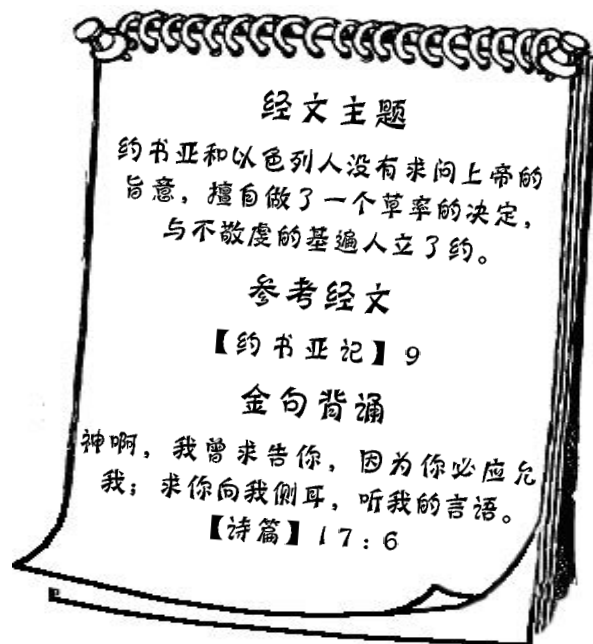 经文主题
约书亚和以色列人没有求问上帝的
旨意，擅自做了一个草率的决定，
与不敬虔的基遍人立了约。
参考经文
【约书亚记】9
金句背诵
神啊，我曾求告你，因为你必应允
我；求你向我侧耳，听我的言语。
【诗篇】17：6